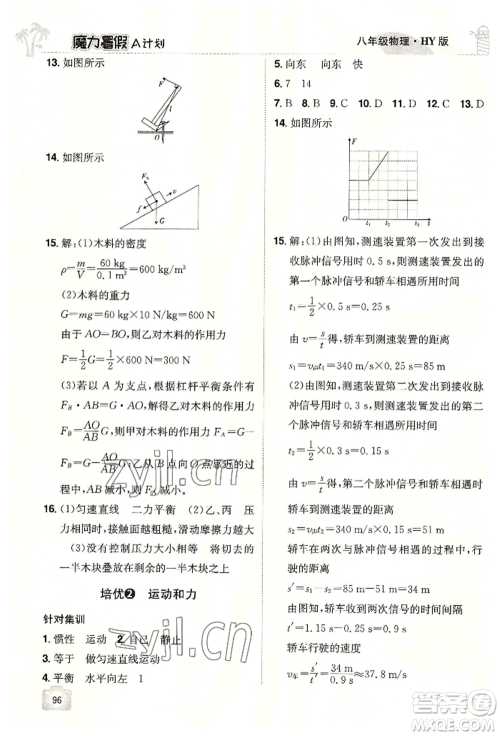 魔力暑假 A计划
八年级物理·HY版
13. 如图所示
14. 如图所示
15. 解：(1)木料的密度
ρ=m/V=60 kg/0.1 m³=600 kg/m³
(2)木料的重力
G=mg=60 kg×10 N/kg=600 N
由于AO=BO，则乙对木料的作用力
F=1/2 G=1/2×600 N=300 N
(3)若以A为支点，根据杠杆平衡条件有
F_B·AB=G·AO，则乙对木料的作用力
F_B=AO/AB G，则甲对木料的作用力F_A=
G-F_B=G-AO/AB G，在B向O点靠近的过
程中，AB减小，则F_A减小。
16. (1)匀速直线 二力平衡 (2)乙、丙 压
力相同时，接触面越粗糙，滑动摩擦力越大
(3)没有控制压力大小相等 将切去的
一半木块叠放在剩余的一半木块之上
培优❷ 运动和力
针对集训
1. 惯性 运动 2. 自己 静止
3. 等于 做匀速直线运动
4. 平衡 水平向左 1
96
5. 向东 向东 快
6. 7 14
7. B 8. B 9. B 10. D 11. C 12. D 13. B
14. 如图所示
15. 解：(1)由图知，测速装置第一次发出到接
收脉冲信号用时0.5 s，则测速装置发出
的第一个脉冲信号和轿车相遇用时
t₁=1/2×0.5 s=0.25 s
由v=s/t得，轿车到测速装置的距离
s₁=v声t₁=340 m/s×0.25 s=85 m
(2)由图知，测速装置第二次发出到接收脉
冲信号用时0.3 s，则测速装置发出的第二
个脉冲信号和轿车相遇用时
t₂=1/2×0.3 s=0.15 s
由v=s/t得，轿车到测速装置的距离
s₂=v声t₂=340 m/s×0.15 s=51 m
轿车在两次与脉冲信号相遇期间的行驶
距离
s′=s₁-s₂=85 m-51 m=34 m
轿车两次与脉冲信号相遇的时间间隔
zyjl.cn
zyjl.cn